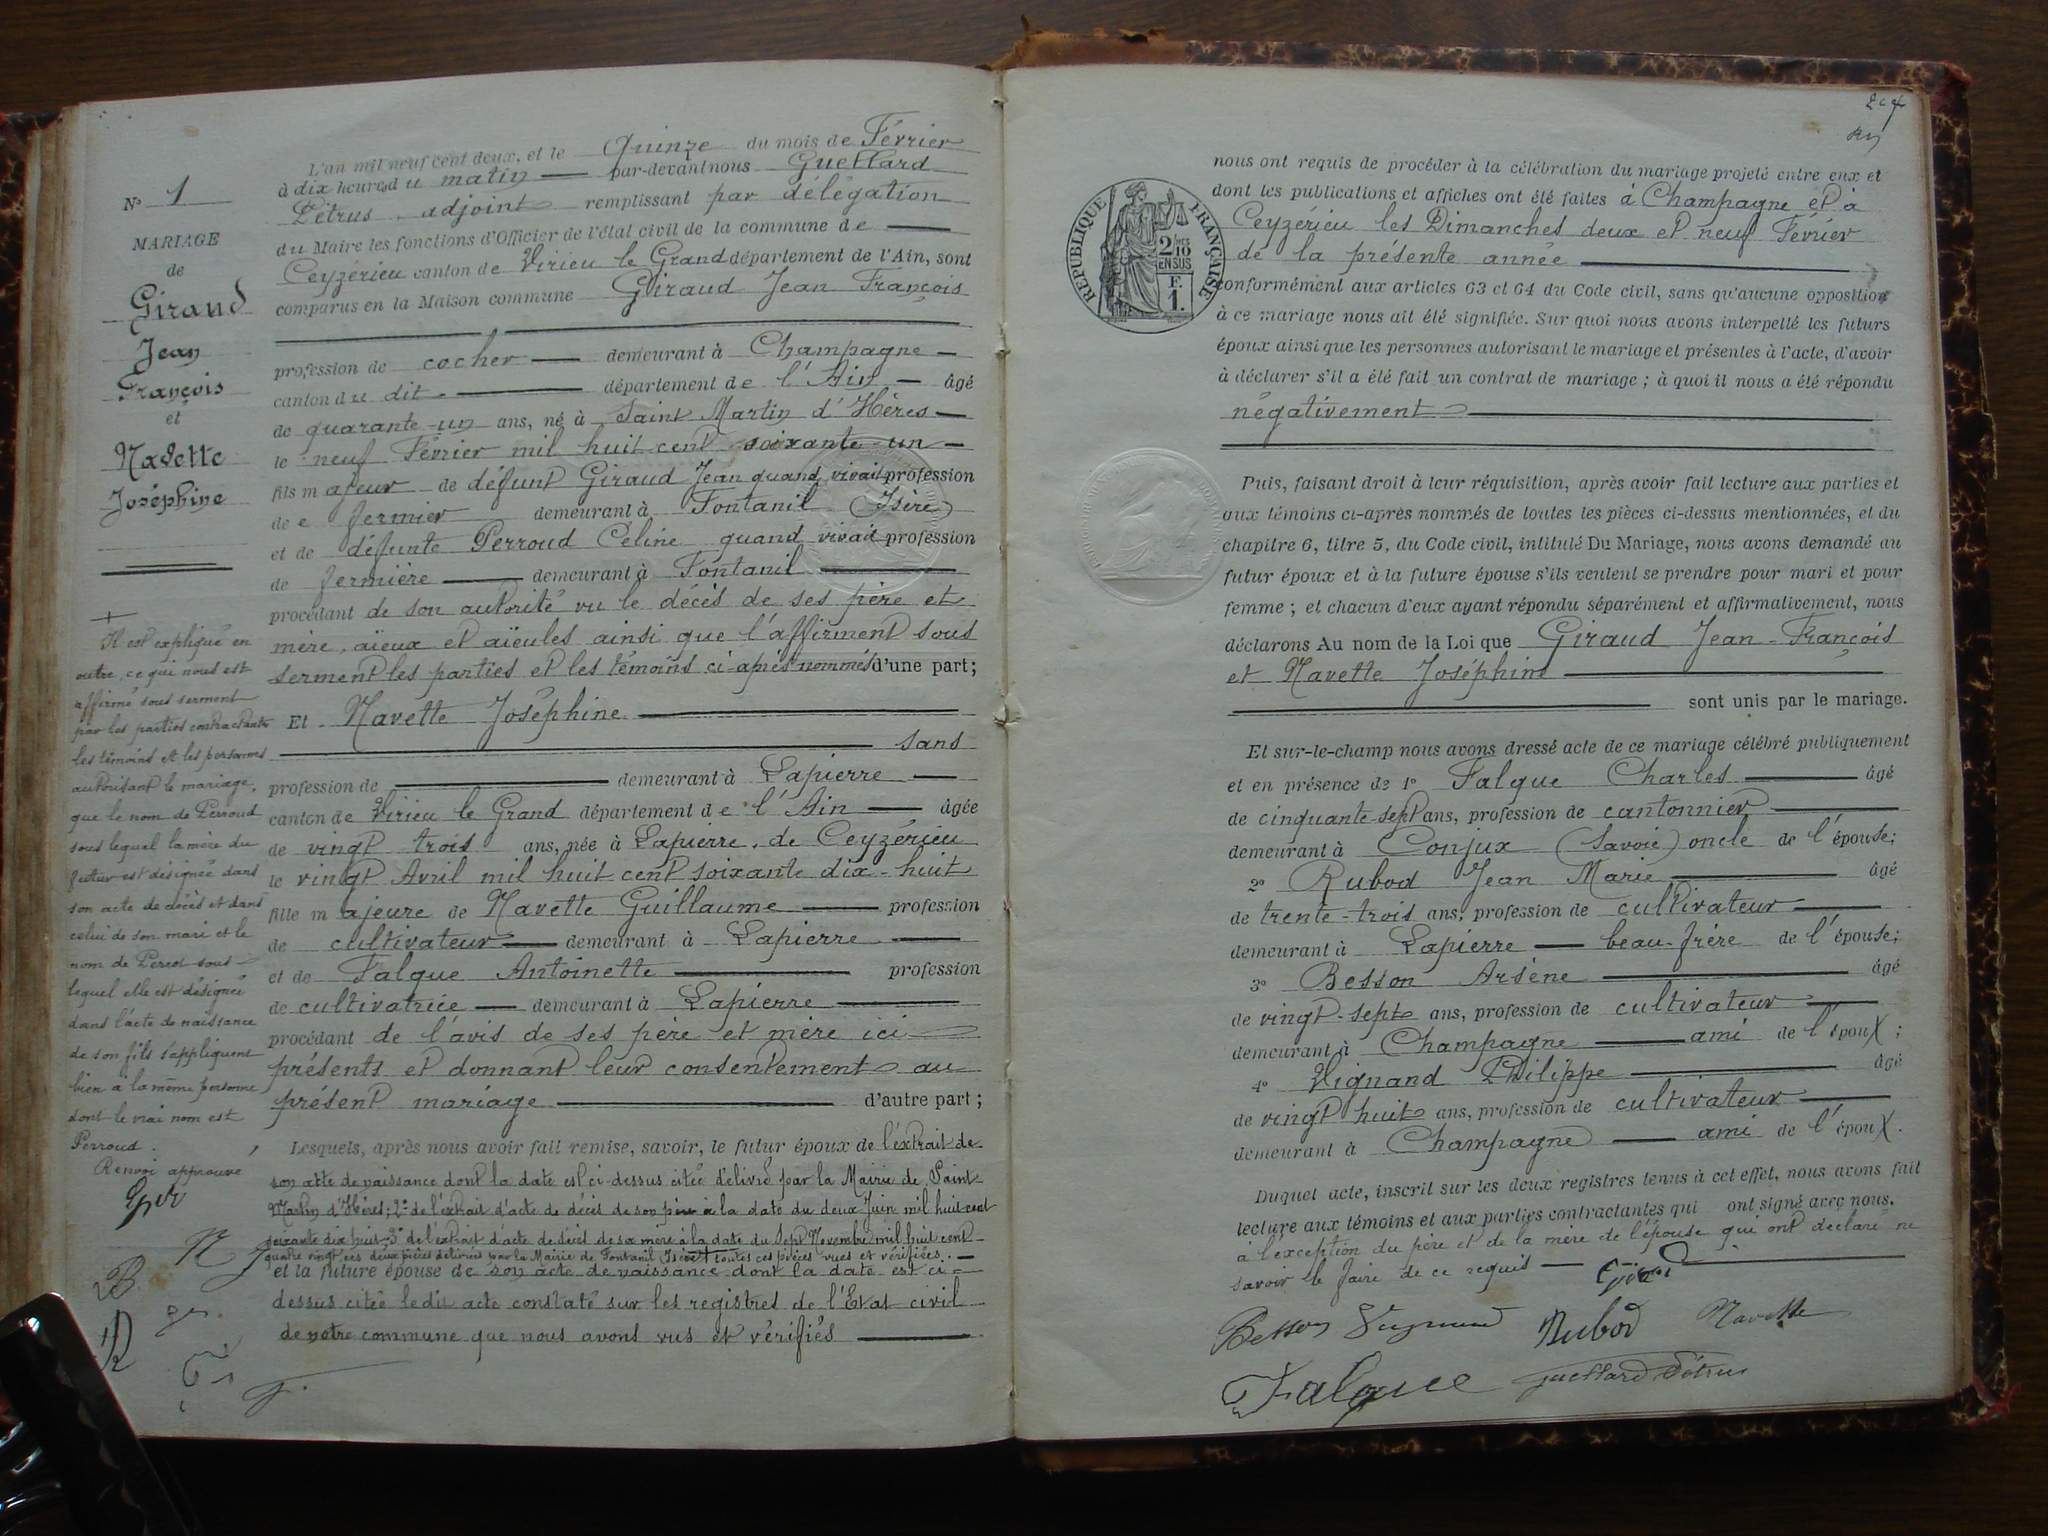 N° 1
MARIAGE
de
Giraud
Jean
François
et
Navette
Joséphine
Il est expliqué en
outre, ce qui nous est
affirmé sous serment
par les parties contractantes
les témoins et les personnes
autorisant le mariage,
que le nom de Perroud
sous lequel la mère du
futur est désignée dans
son acte de décès et dans
celui de son mari et le
nom de Perrot sous
lequel elle est désignée
dans l'acte de naissance
de son fils s'appliquent
bien a la même personne
dont le vrai nom est
Perroud.
Renvoi approuvé
L'an mil neuf cent deux, et le Quinze du mois de Février
à dix heures du matin par-devant nous Guettard
Pétrus, adjoint remplissant par délégation
du Maire les fonctions d'Officier de l'état civil de la commune de
Ceyzérieu canton de Virieu le Grand département de l'Ain, sont
comparus en la Maison commune Giraud Jean François
profession de cocher demeurant à Champagne
canton du dit département de l'Ain âgé
de quarante-un ans, né à Saint Martin d'Hères
le neuf Février mil huit cent soixante-un
fils majeur de défunt Giraud Jean quand vivait profession
de fermier demeurant à Fontanil (Isère)
et de défunte Perroud Céline quand vivait profession
de fermière demeurant à Fontanil
procédant de son autorité vu le décès de ses père et
mère, aïeux et aïeules ainsi que l'affirment sous
serment les parties et les témoins ci-après nommés d'une part;
Et Navette Joséphine
sans
profession de demeurant à Lapierre
canton de Virieu le Grand département de l'Ain âgée
de vingt trois ans, née à Lapierre, de Ceyzérieu
le vingt Avril mil huit cent soixante dix-huit
fille majeure de Navette Guillaume profession
de cultivateur demeurant à Lapierre
et de Falque Antoinette profession
de cultivatrice demeurant à Lapierre
procédant de l'avis de ses père et mère ici
présents et donnant leur consentement au
présent mariage d'autre part;
Lesquels, après nous avoir fait remise, savoir, le futur époux de l'extrait de
son acte de naissance dont la date est ci-dessus citée délivré par la Mairie de Saint
Martin d'Hères; 2° de l'extrait d'acte de décès de son père à la date du deux Juin mil huit cent
soixante dix huit; 3° de l'extrait d'acte de décès de sa mère à la date du Sept Novembre mil huit cent
quatre vingt ces deux pièces délivrées par la Mairie de Fontanil Isère toutes ces pièces vues et vérifiées.
et la future épouse de son acte de naissance dont la date est ci-
dessus citée ledit acte constaté sur les registres de l'Etat civil
de notre commune que nous avons vus et vérifiés
RÉPUBLIQUE FRANÇAISE
2/10
EN SUS
F.
1.
nous ont requis de procéder à la célébration du mariage projeté entre eux et
dont les publications et affiches ont été faites à Champagne et à
Ceyzérieu les Dimanches deux et neuf Février
de la présente année
conformément aux articles 63 et 64 du Code civil, sans qu'aucune opposition
à ce mariage nous ait été signifiée. Sur quoi nous avons interpellé les futurs
époux ainsi que les personnes autorisant le mariage et présentes à l'acte, d'avoir
à déclarer s'il a été fait un contrat de mariage; à quoi il nous a été répondu
négativement
Puis, faisant droit à leur réquisition, après avoir fait lecture aux parties et
aux témoins ci-après nommés de toutes les pièces ci-dessus mentionnées, et du
chapitre 6, titre 5, du Code civil, intitulé Du Mariage, nous avons demandé au
futur époux et à la future épouse s'ils veulent se prendre pour mari et pour
femme; et chacun d'eux ayant répondu séparément et affirmativement, nous
déclarons Au nom de la Loi que Giraud Jean-François
et Navette Joséphine
sont unis par le mariage.
Et sur-le-champ nous avons dressé acte de ce mariage célébré publiquement
et en présence de 1° Falque Charles âgé
de cinquante sept ans, profession de cantonnier
demeurant à Conjux (Savoie) oncle de l'épouse;
2° Rubod Jean Marie âgé
de trente-trois ans, profession de cultivateur
demeurant à Lapierre beau-frère de l'épouse;
3° Besson Arsène âgé
de vingt-sept ans, profession de cultivateur
demeurant à Champagne ami de l'époux;
4° Vignand Philippe âgé
de vingt huit ans, profession de cultivateur
demeurant à Champagne ami de l'époux.
Duquel acte, inscrit sur les deux registres tenus à cet effet, nous avons fait
lecture aux témoins et aux parties contractantes qui ont signé avec nous.
à l'exception du père et de la mère de l'épouse qui ont déclaré ne
savoir le faire de ce requis
Besson Vignand Rubod Navette
Falque Guettard Pétrus